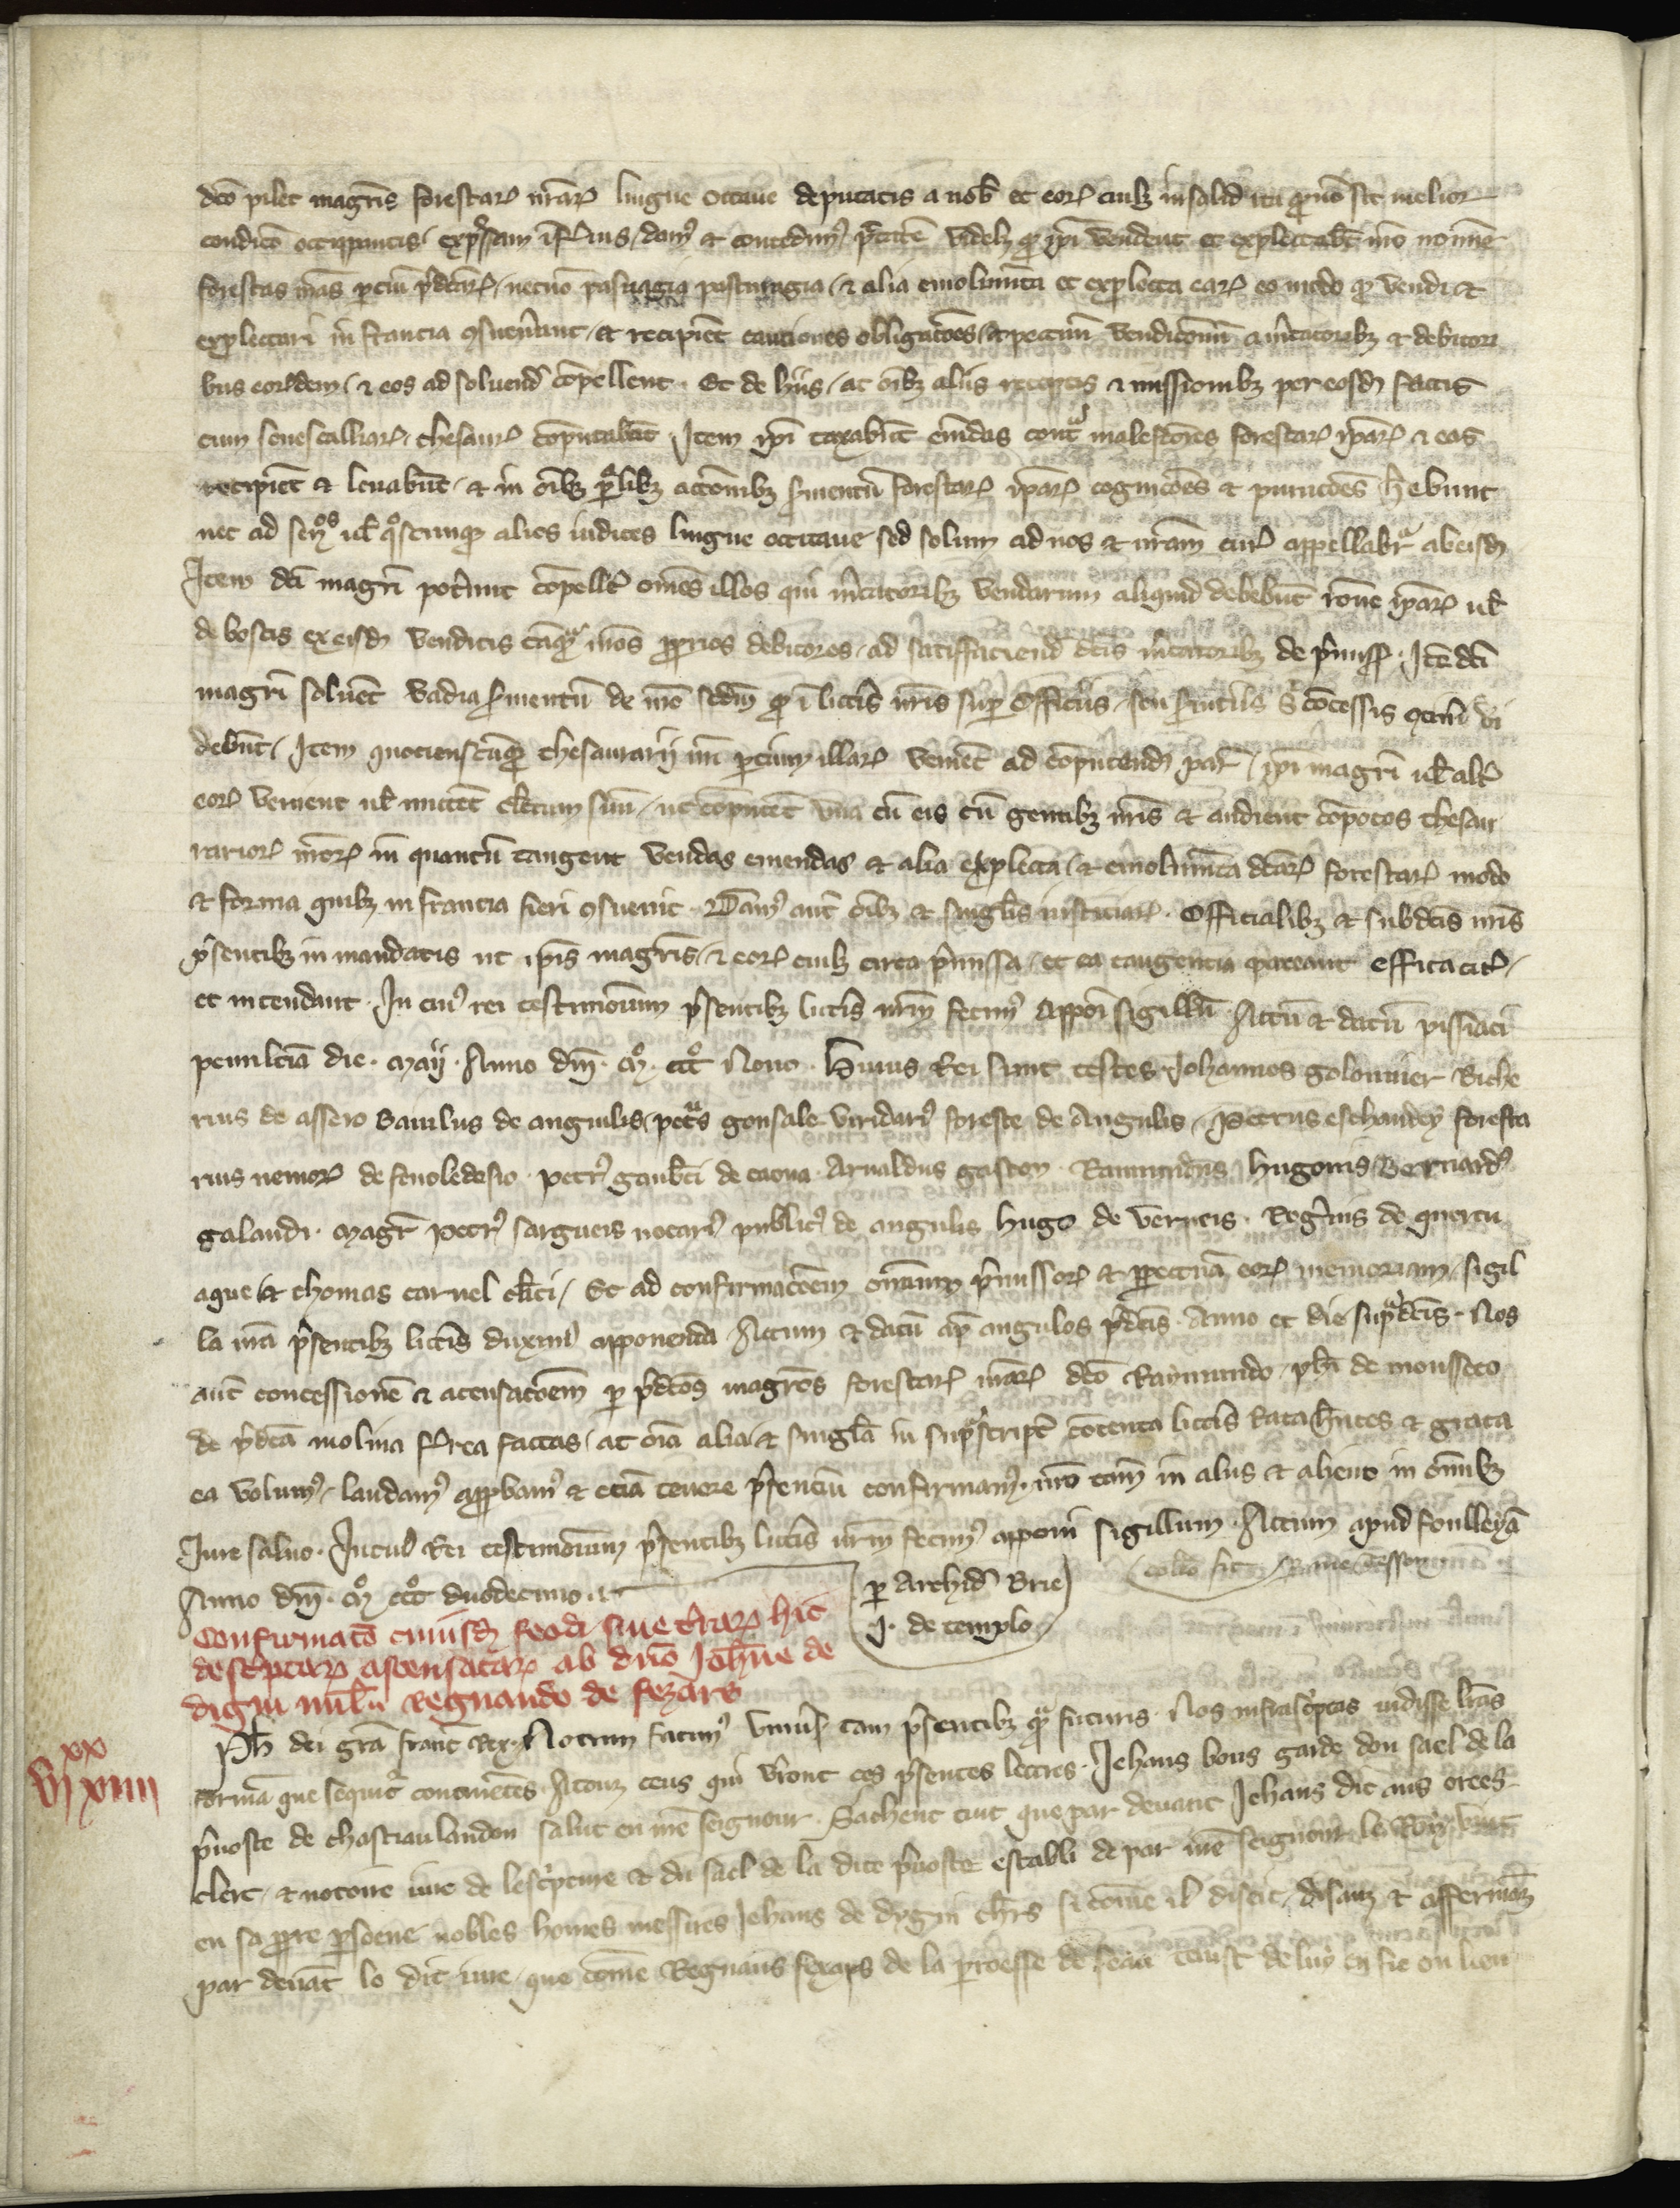 dc̄o pilet magr̄is forestaꝝ nr̄aꝝ lingue occitane deputatis a nob̄ et eoꝝ cuilꝫ insolid ita qđ no sit melior
condic̄o occupantis exp̄ssam inferius dam⁹ et concedim⁹ p̄tatem videlꝫ qđ ip̄i vendent et explectabūt nr̄o nomine
forestas nr̄as ꝑciū p̄dc̄aꝝ necnō pasnagia pasturagia ⁊ alia emolum̄ta et explecta eaꝝ eo modo qđ vendi et
explectari in francia ꝯsueuerunt et recipiēt cautiones obligac̄oēs ⁊ pecciam vendic̄onū a m̄catoribꝫ et debitori
bus eorūdem ⁊ eos ad soluend̄ cōpellent. Et de hiis ac oībꝫ aliis receptis ⁊ missionibꝫ per eosdꝫ factis
cum senescalliaꝝ thesaurꝝ cōputabūt. Item ip̄i taxabūt em̄das contᵃ malef̄cores forestaꝝ ip̄aꝝ ⁊ eas
recipiēt ⁊ leuabūt ⁊ in oībꝫ p̄libꝫ acc̄onibꝫ ꝑtinentiū forestaꝝ ip̄aꝝ cognic̄oēs ⁊ punic̄oēs h̄ebunt
nec ad sen̄os ul̄ qᵒscunqꝫ alios iudices lingue occitane sed solum ad nos ⁊ nr̄am cur̄ appellabr̄ᵃ ab eisdꝫ
Item dc̄i magr̄i pot̄unt cōpell̄e om̄es illos qui m̄catoribꝫ vendarum aliquid debebūt rōne ip̄aꝝ ul̄
de boscis ex eisdꝫ venditis tāqᵃꝫ nr̄os ꝓprios debitores ad satisfaciend̄ dc̄is m̄catoribꝫ de p̄miss̄. Itē dc̄i
magr̄i soluēt vadia ꝑmentū de nr̄o scdm̄ qđ ī litt̄is nr̄is suꝑ officiis seu ꝑuiciis ꝯcessis ꝯtin̄i vi
debūt. Item quocienscūqꝫ thesaurarij nr̄i ꝑcium illaꝝ venient ad cōputandꝫ par̄ ip̄i magr̄i ul̄ alt̄
eoꝝ venient ul̄ mittēt cl̄icum suū ut cōputēt vna cū eis cū gentibꝫ nr̄is ⁊ audient cōpotos thesau
rarioꝝ nr̄oꝝ in quantū tangent vendas emendas ⁊ alia explecta ⁊ emolum̄ta dc̄aꝝ forestaꝝ modo
⁊ forma quibꝫ in francia fieri ꝯsueuit. Dam⁹ aut̄ oībꝫ ⁊ singlis iusticiaꝝ. Officialibꝫ ⁊ subdc̄is nr̄is
p̄sentibꝫ in mandatis ut ip̄is magr̄is ⁊ eoꝝ cuilꝫ circa p̄missa et ea tangentia pareant efficacit̄
et intendant. In cui⁹ rei testimoniū p̄sentibꝫ litt̄is nr̄m fecim⁹ apponi sigillū. Actū ⁊ datū pissiaci
penultiā die. Maij. Anno dn̄i. Mᵒ. ccc̊ Nono. Huius Rei sunt testes Johannes golouiner Riche
rius de assero Baiulus de angulis, petᵘs gonsale viridari⁹ foreste de Angulis, Petrus eschaudey foresta
rius nemoꝝ de fenoledesio. petr⁹ gaub̄ti de caona. Arnaldus gaston. Raimundus hugonis Bernard⁹
galandi. Magr̄ Petr⁹ sargueis notari⁹ public⁹ de angulis Hugo de verneis. Reginus de quercu
aque ⁊ thomas carnel cl̄ici. Et ad confirmac̄oem om̄ium p̄missoꝝ ⁊ ꝑpetuā eoꝝ memoriam sigil
la nr̄a p̄sentibꝫ litt̄is duxim⁹ apponenda. Actum ⁊ datū ap̄ angulos p̄dc̄is. Anno et die supᵃdc̄is. Nos
aut̄ concessionē ⁊ acensac̄oem ꝑ p̄dc̄os magr̄os forestaꝝ nr̄aꝝ dc̄o Raymundo phi de monsseco
de p̄dc̄a molina ferrea factas ac oīa alia ⁊ singl̄a in supᵃscript̄ cōtenta litt̄is Rata h̄ntes ⁊ grata
ea volum⁹ laudam⁹ appbam⁹ ⁊ etiā tenore p̄senciū confirmam⁹. nr̄o tam̄ in aliis ⁊ alieno in om̄ibꝫ
Iure saluo. In cui⁹ Rei testimoniū p̄sentibꝫ litt̄is nr̄m fecim⁹ apponi sigillum. Actum apud foulleyā
Anno dn̄i. Mᵒ ccc̊ duodecimo.
ꝑ Archid̄ Brie
J. de templo
collō fit
Confirmatō cuiusdꝫ feodi siue t̄raꝝ hic
desc̄ptaꝝ ascensataꝝ ab dn̄o Joh̄ne de
digni mil̄i Regnaudo de fezars
vj xx xiiii
Ph̄ dei grā franc̄ Rex. Notum facim⁹ vniūs̄ tam p̄sentibꝫ qᵃꝫ futuris. Nos infrasc̄ptas vidisse lr̄as
formā que sequit̄ contin̄etes. A touz ceus qui v̄ront ces p̄sentes lettres. Jehans bous garde dou sael de la
p̄uoste de chastiaulandon salut en nr̄e seigneur. Sachent tuit que par deuant Jehans dit aus orees
clerc ⁊ notoire iure de lesc̄pture ⁊ du sael de la dite p̄uoste establi de par nr̄e seigneur le Roy vint
en sa ꝓpre ꝑsoene nobles homes messires Jehans de dygni ch̄rs si come il disoit, disanz ⁊ affermāz
par deuāt lo dit iure que come Regnaus fezars de la paroesse de teust de luy en fie ou lieu